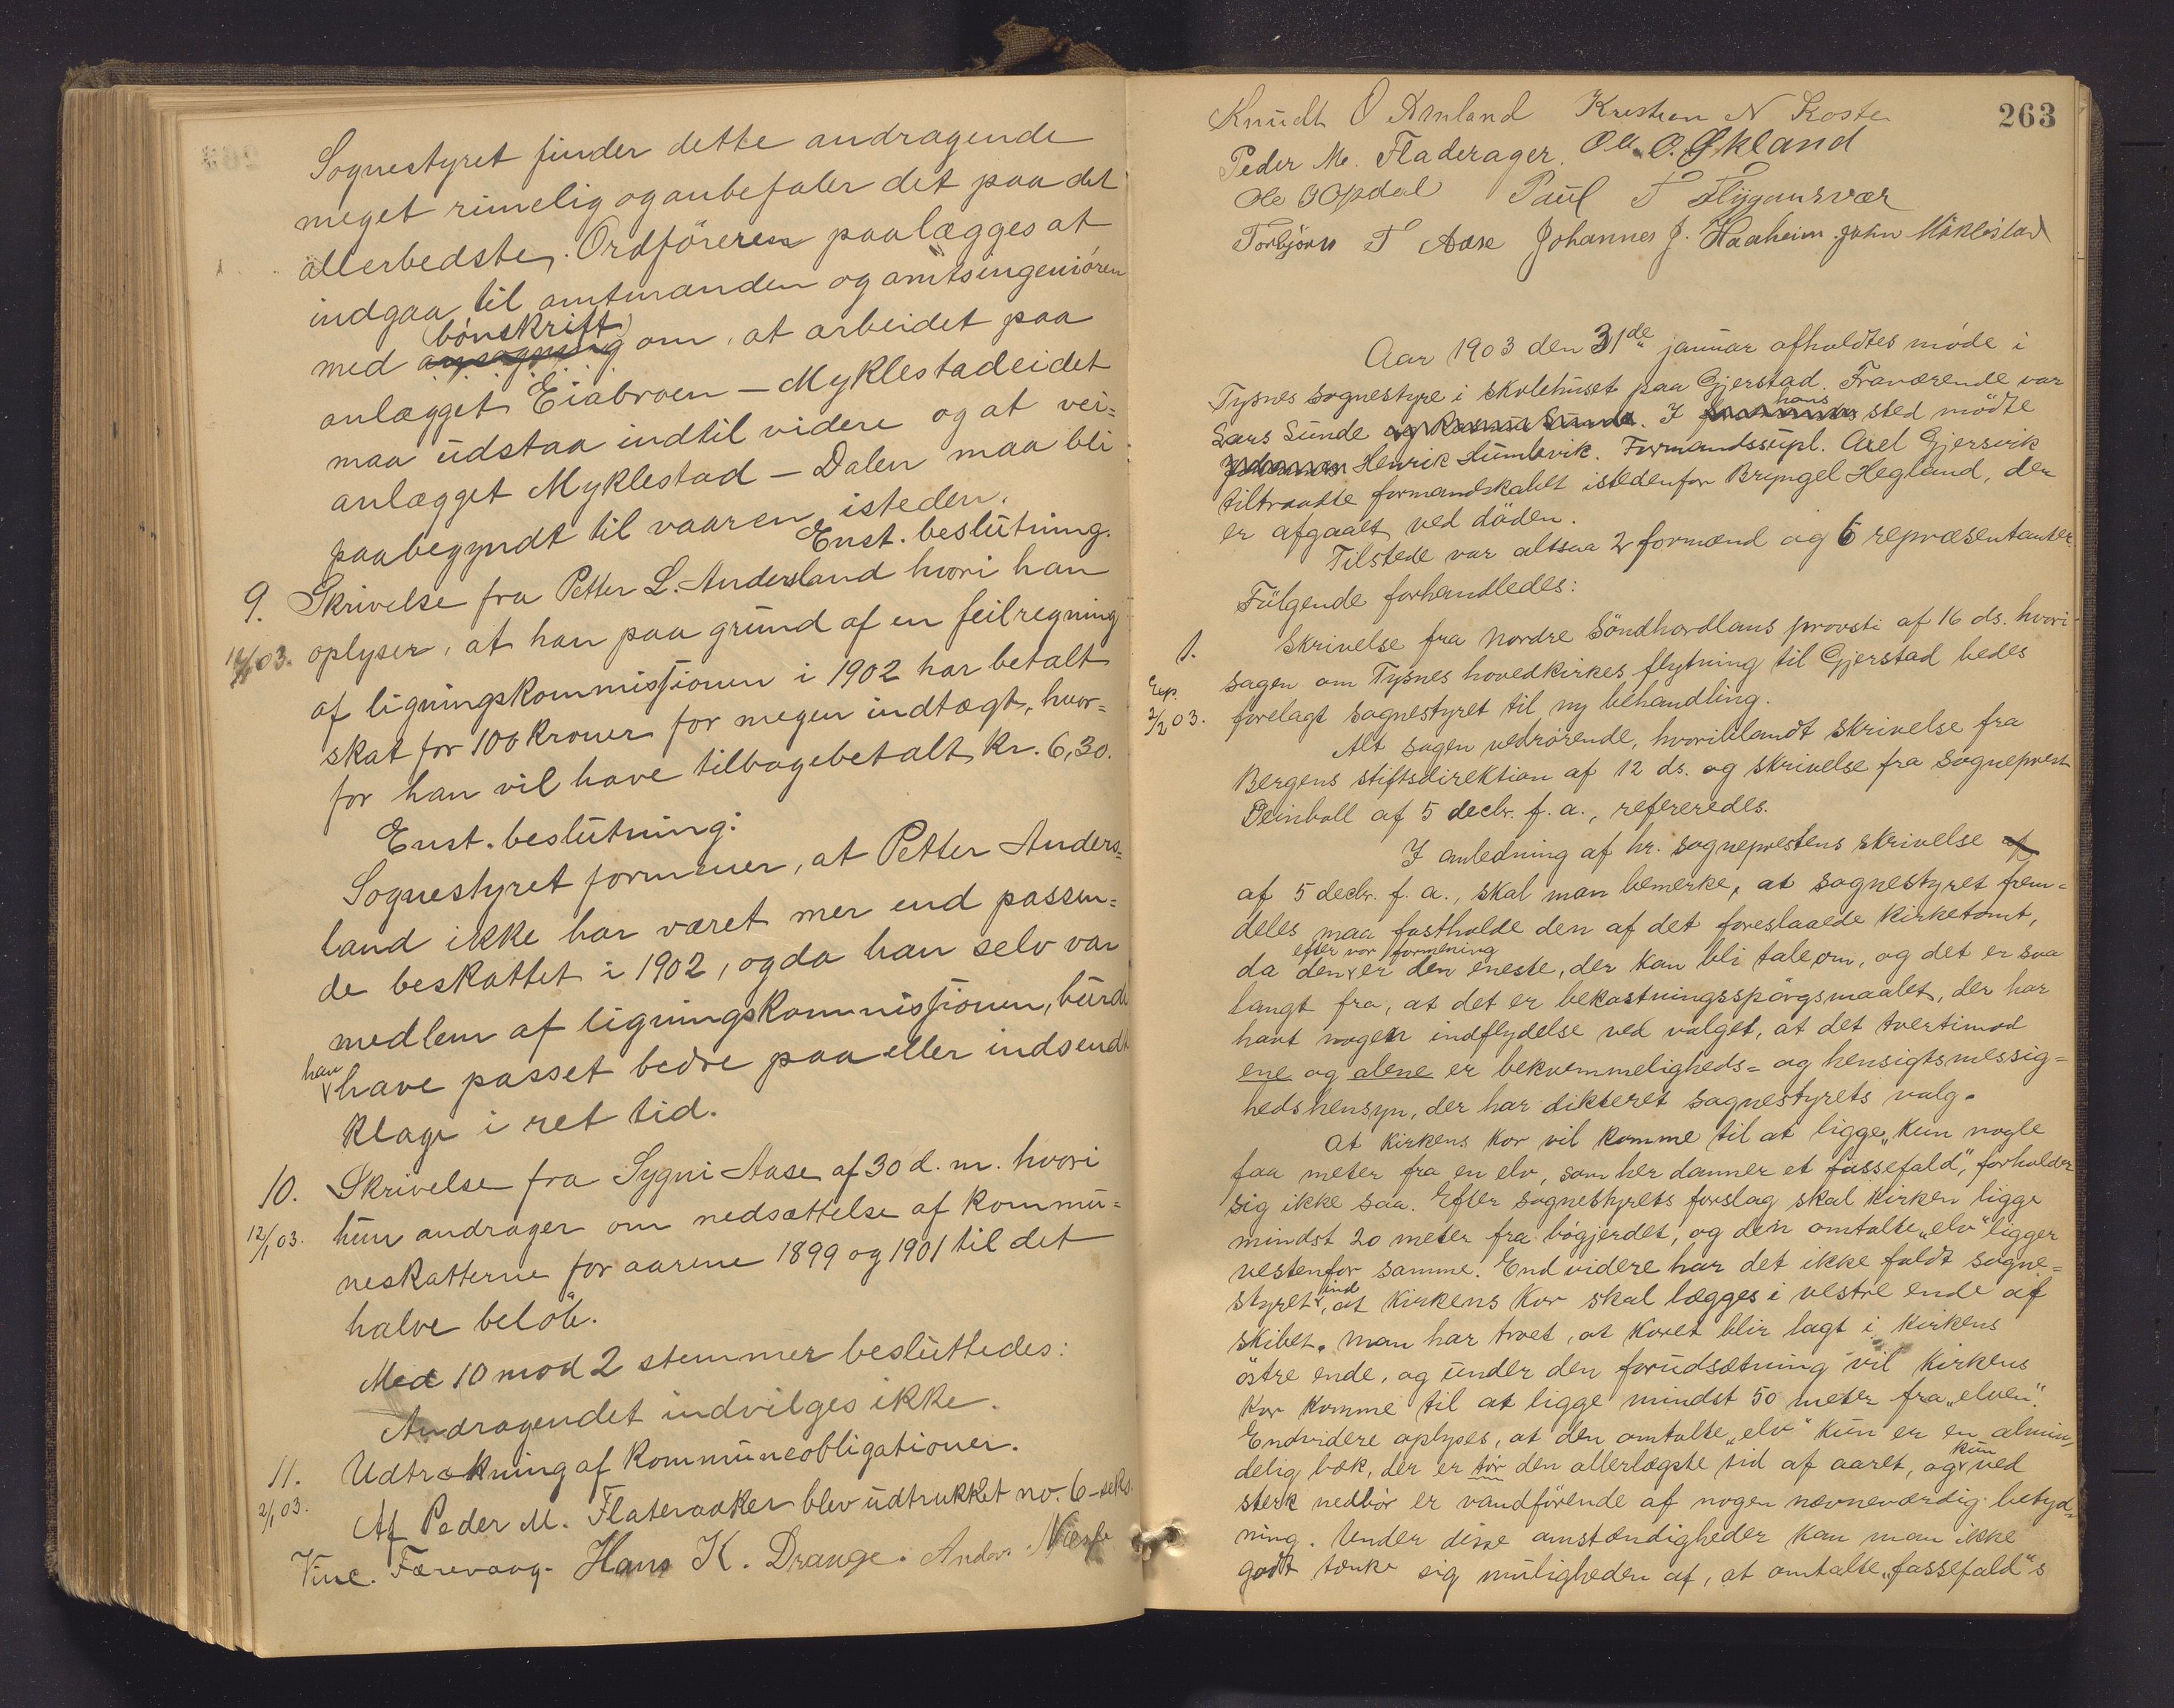 Sognestyret finder dette andragende
meget rimelig og anbefaler det paa det
allerbedste. Ordföreren paalægges at
indgaa til amtmanden og amtsingeniören
(bönskrift)
med ansøgning om, at arbeidet paa
anlægget Eiabroen - Myklestadeidet
maa udstaa indtil videre og at vei=
anlægget Myklestad - Dalen maa bli
paabegyndt til vaaren isteden.
Enst. beslutning.
9. Skrivelse fra Petter L. Andersland hvori han
/03. oplyser, at han paa grund af en feilregning
af ligningskommissionen i 1902 har betalt
skat for 100 kroner for megen indtægt, hvor=
for han vil have tilbagebetalt kr. 6,30.
Enst. beslutning:
Sognestyret formener, at Petter Anders=
land ikke har været mer end passen=
de beskattet i 1902, og da han selv var
medlem af ligningskommissionen, burde
han
have passet bedre paa eller indsendt
klage i ret tid.
10. Skrivelse fra Sygni Aase af 30 d. m. hvori
12/1 03. hun andrager om nedsættelse af kommu=
neskatterne for aarene 1899 og 1901 til det
halve belöb.
Med 10 mod 2 stemmer besluttedes:
Andragendet indvilges ikke.
11. Udtrækning af kommuneobligationer.
2/1 03. Af Peder M. Flateraaker blev udtrukket no. 6 - seks.
Vinc. Færevaag. Hans K. Drange. Anders
263
Knudt O Amland Kresten N Koste
Peder M. Fladerager. Oa. O. Økland
Ole O Opdal Paul T Flygansvær
Torbjörn T Aase Johannes J. Haaheim. John Müklestad
Aar 1903 den 31de januar afholdtes möde i
Tysnes sognestyre i skolehuset paa Gjerstad. Fraværende var
hans
Lars Sunde og Rasmus Sunde. I sted mödte
Henrik Humlevik. Formandssupl. Axel Gjersvik
tiltraadte formandskabet istedenfor Bryngel Hegland, der
er afgaaet ved döden.
Tilstede var altsaa 2 formænd og 6 repræsentanter.
Fölgende forhandledes:
1. Skrivelse fra Nordre Söndhordlans provsti af 16 ds. hvori
Exp. sagen om Tysnes hovedkirkes flytning til Gjerstad bedes
2/2 03. forelagt sognestyret til ny behandling.
Alt sagen vedrörende, hvoriblandt skrivelse fra
Bergens stiftsdirektion af 12 ds. og skrivelse fra Sogneprest
Deinboll af 5 decbr. f. a., refereredes.
I anledning af hr. sogneprestens skrivelse af
af 5 decbr. f. a., skal man bemerke, at sognestyret frem=
deles maa fastholde den af det foreslaaede kirketomt,
efter vor formening
da den er den eneste, der kan bli tale om, og det er saa
langt fra, at det er bekostningsspörgsmaalet, der har
havt nogen indflydelse ved valget, at det tvertimod
ene og alene er bekvemmeligheds= og hensigtsmessig=
hedshensyn, der har dikteret sognestyrets valg.
At kirkens kor vil komme til at ligge „kun nogle
faa meter fra en elv, som her danner et fossefald“, forholder
sig ikke saa. Efter sognestyrets forslag skal kirken ligge
mindst 20 meter fra bögjerdet, og den omtalte „elv“ ligger
vestenfor samme. End videre har det ikke faldt sogne=
ind
styret, at kirkens kor skal lægges i vestre ende af
skibet. Man har troet, at koret blir lagt i kirkens
östre ende, og under den forudsætning vil kirkens
kor komme til at ligge mindst 50 meter fra „elven“.
Endvidere oplyses, at den omtalte „elv“ kun er en almin=
kun
delig bæk, der er tör den allerlægste tid af aaret, og ved
sterk nedbör er vandförende af nogen nævneværdig betyd=
ning. Under disse omstændigheder kan man ikke
godt tænke sig muligheden af, at omtalte „fossefald“s